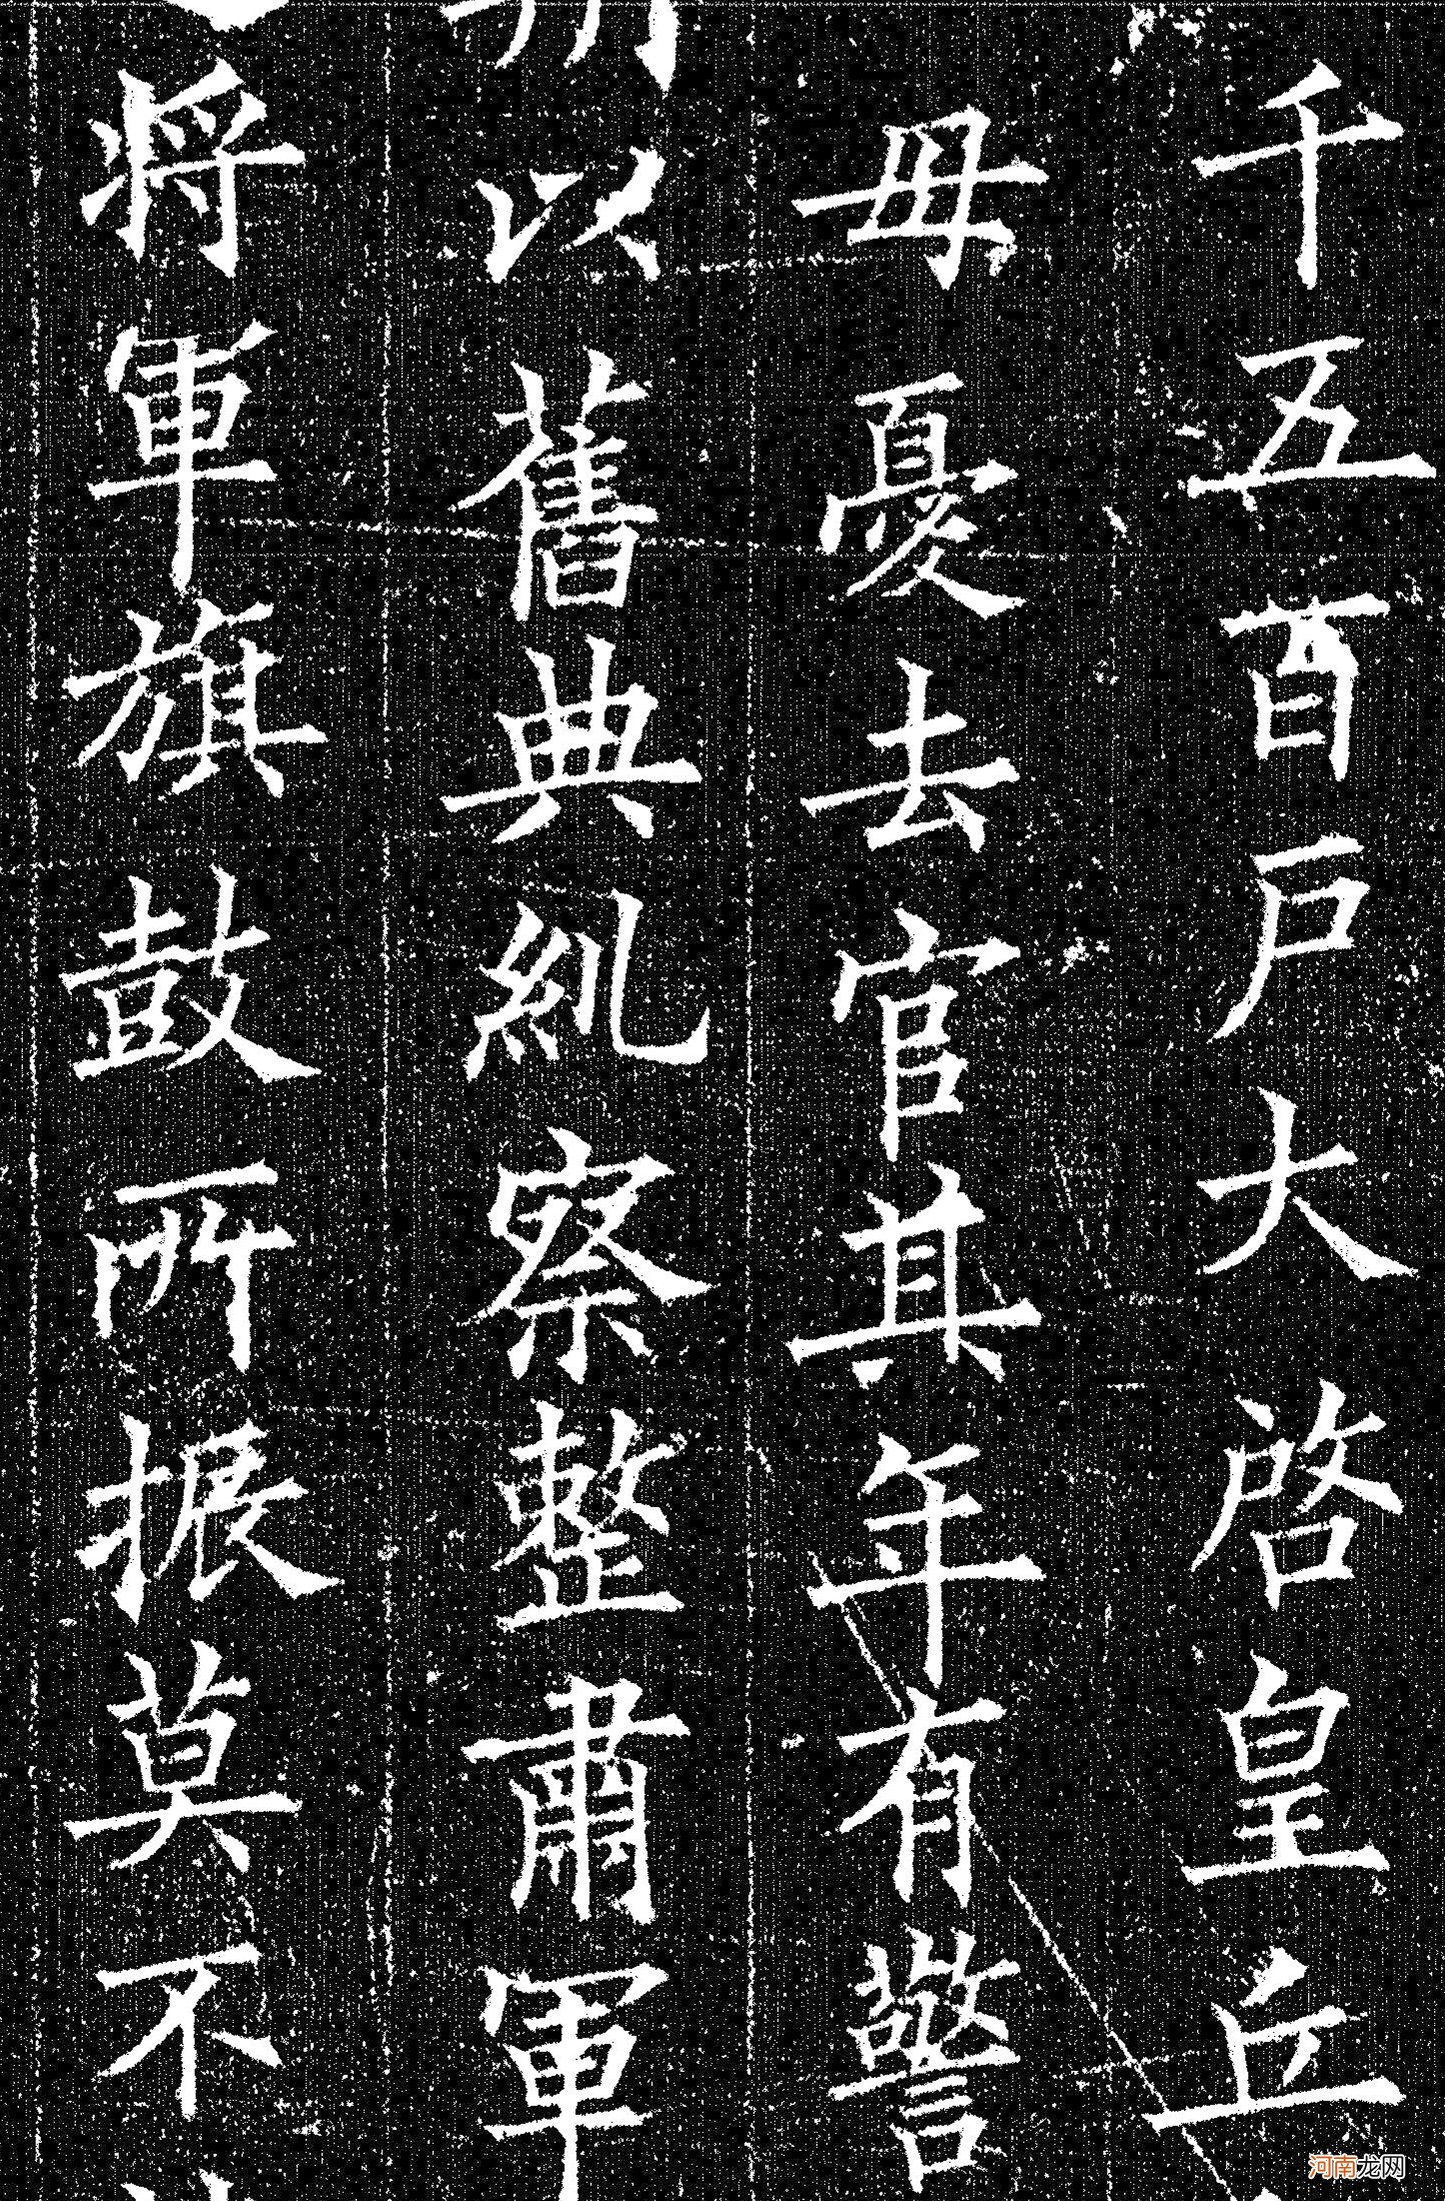 千五百戶大啓皇丘
毋憂去官其年有警
以舊典糺察整肅軍
將軍旗鼓所振莫不
河南龙网